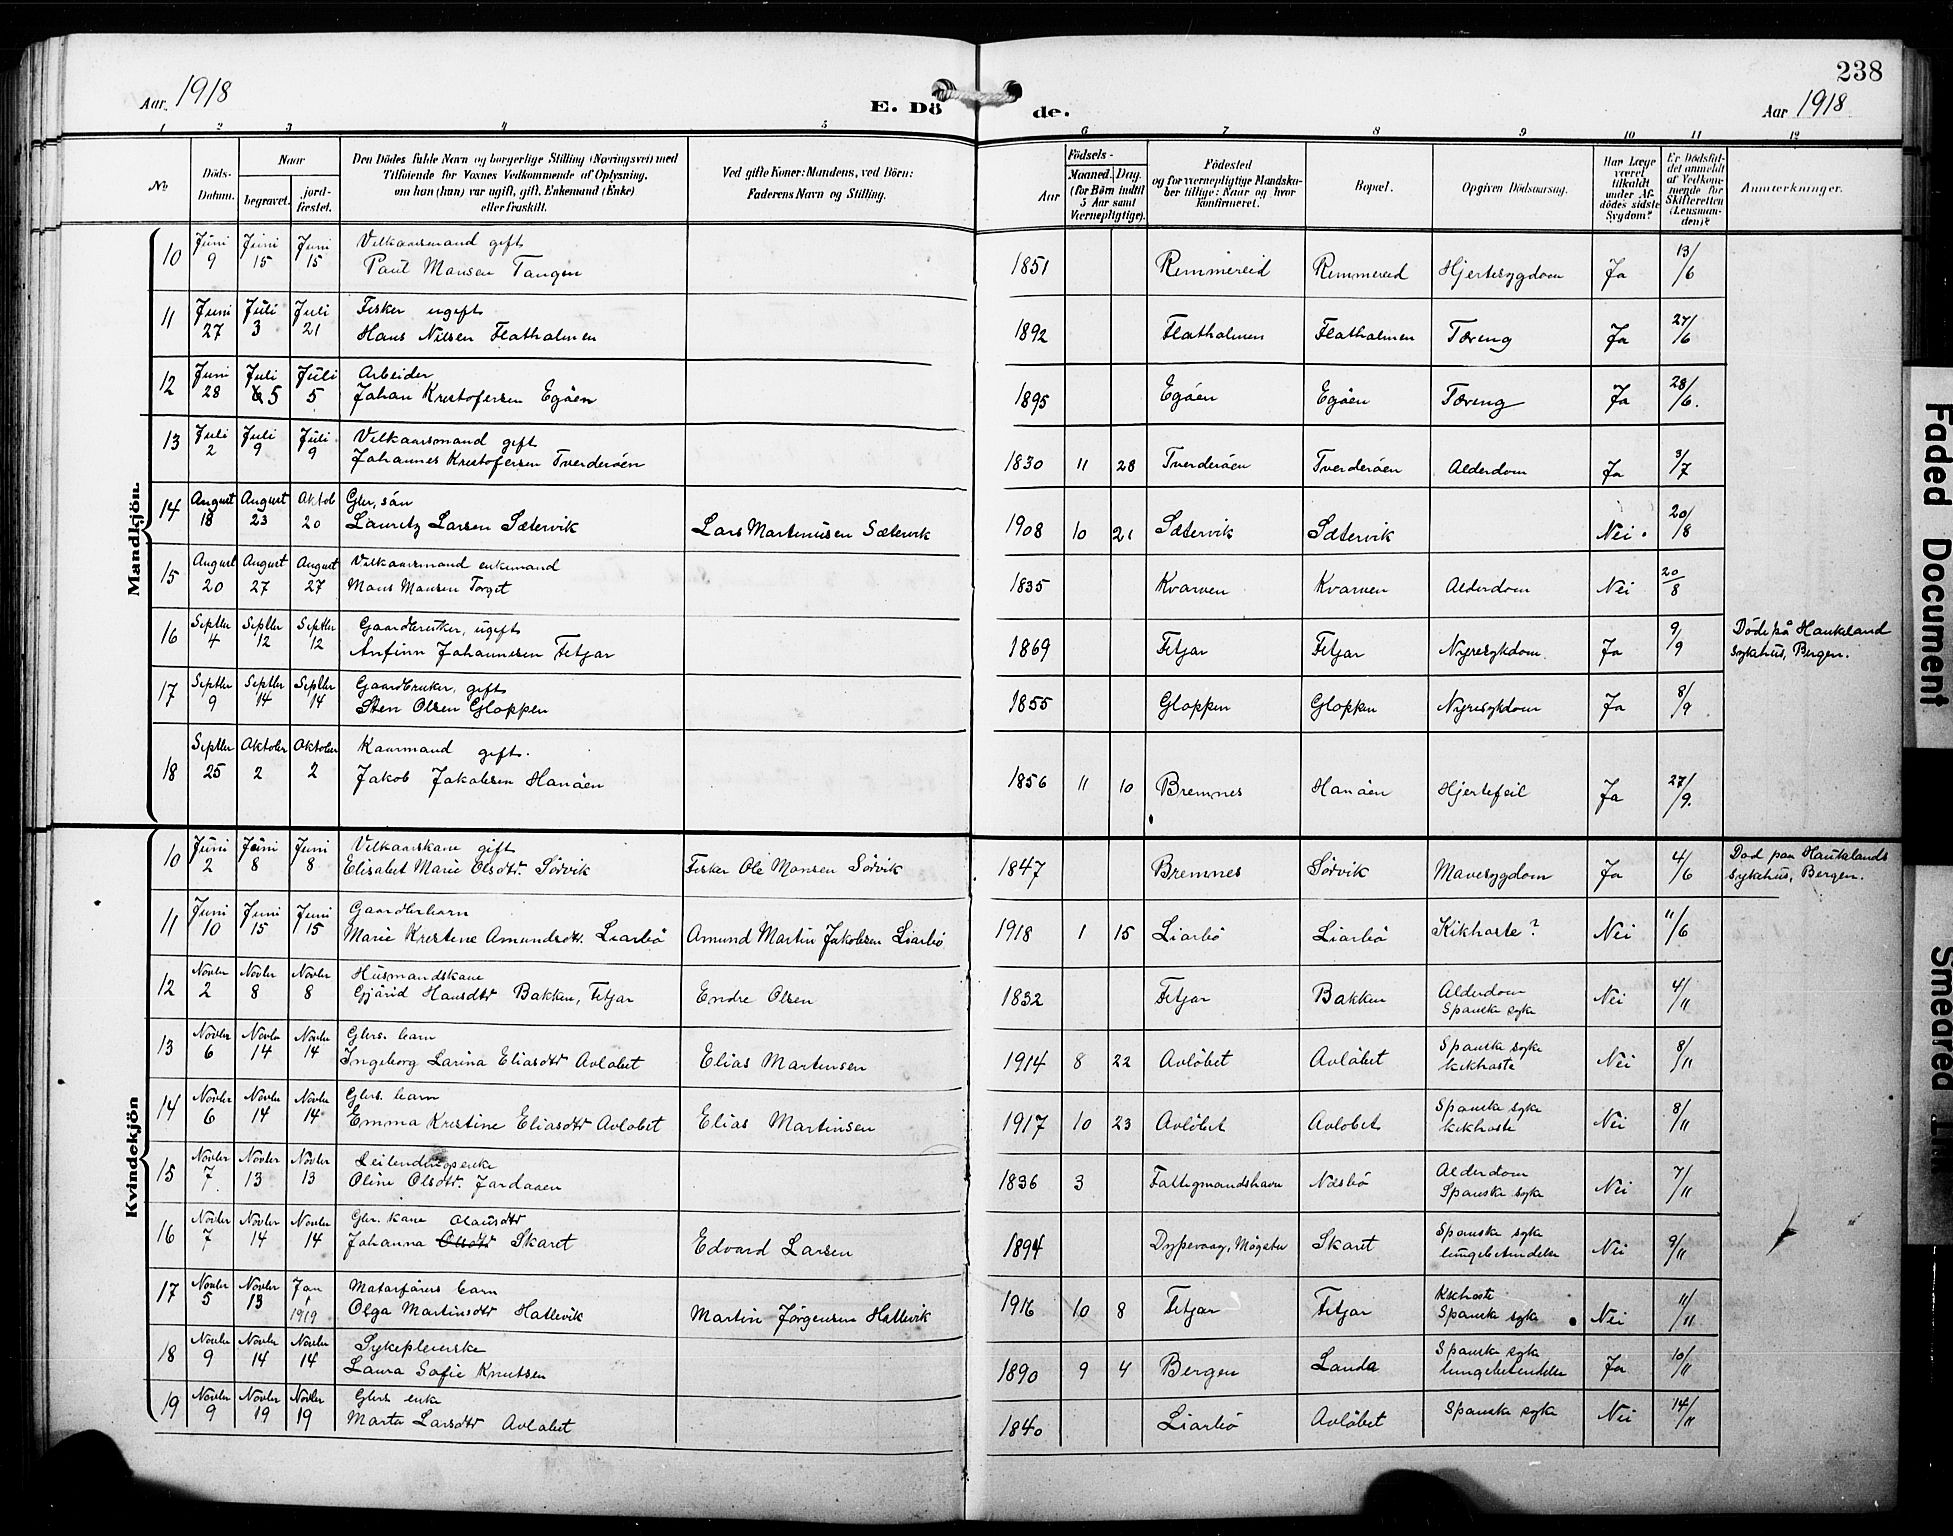 238
Aar 1918
E. Dö
de.
Aar 1918
1 2 3 4 5 6 7 8 9 10 11 12
No
Döds-Datum.
Naar
begravet.
jord-fæstet.
Den Dödes fulde Navn og borgerlige Stilling (Næringsvei) med
Tilföiende for Voxnes Vedkommende af Oplysning,
om han (hun) var ugift, gift, Enkemand (Enke)
eller fraskilt.
Ved gifte Koner: Mandens, ved Börn:
Faderens Navn og Stilling.
Födsels-
Aar
Maaned. Dag.
(for Börn indtil
5 Aar samt
Værnepligtige).
Födested
og for værnepligtige Mandska-
ber tillige: Naar og hvor
konfirmeret.
Bopæl.
Opgiven Dödsaarsag.
Har Læge
været
tilkaldt
under Af-
dödes sidste
Sygdom?
Er Dödsfal-
det anmeldt
af Vedkom-
mende for
Skifteretten
(Lensman-
den)?
Anmærkninger.
Mandkjön.
10 Juni 9 Juni 15 Juni 15 Vilkaarsmand gift
Paul Mansen Tangen 1851 Remmereid Remmereid Hjertesygdom Ja 13/6
11 Juni 27 Juli 3 Juli 21 Fisker ugift
Hans Nilsen Flatholmen 1892 Flatholmen Flatholmen Tæring Ja 27/6
12 Juni 28 Juli 5 Juli 5 Arbeider
Johan Kristofersen Egöen 1895 Egöen Egöen Tæring Ja 28/6.
13 Juli 2 Juli 9 Juli 9 Vilkaarsmand gift
Johannes Kristofersen Tverderöen 1830 11 28 Tverderöen Tverderöen Alderdom Ja 3/7
14 August 18 August 23 Oktob 20 Gbr, sön
Lauritz Larsen Sætervik Lars Martinusen Sætervik 1908 10 21 Sætervik Sætervik Nei. 20/8
15 August 20 August 27 August 27 Vilkaarsmand enkemand
Mons Monsen Torget 1835 Kvarven Kvarven Alderdom Nei 20/8
16 Septbr 4 Septbr 12 Septbr 12 Gaardbruker, ugift
Anfinn Johannesen Fitjar 1869 Fitjar Fitjar Nyresykdom. Ja 9/9 Döde på Haukeland
sykehus, Bergen.
17 Septbr 9 Septbr 14 Septbr 14 Gaardbruker, gift
Sten Olsen Gloppen 1855 Gloppen Gloppen Nyresykdom Ja 8/9
18 Septbr 25 Oktober 2 Oktober 2 Kaarmand gift.
Jakob Jakobsen Hanöen 1856 11 10 Bremnes Hanöen Hjertefeil Ja 27/9.
Kvindekjön
10 Juni 2 Juni 8 Juni 8 Vilkaarskone gift
Elisabet Marie Olsdtr. Sörvik Fisker Ole Monsen Sörvik 1847 Bremnes Sörvik Mavesygdom Ja 4/6 Död paa Hauklands
sykehus, Bergen.
11 Juni 10 Juni 15 Juni 15 Gaardbrbarn
Marie Kristine Amundsdtr. Liarbö Amund Martin Jakobsen Liarbö 1918 1 15 Liarbö Liarbö Kikhoste? Nei 11/6
12 Novbr 2 Novbr 8 Novbr 8 Husmandskone
Gjörid Hansdtr Bakken, Fitjar Endre Olsen 1832 Fitjar Bakken Alderdom
Spanske syke Nei 4/11
13 Novbr 6 Novbr 14 Novbr 14 Gbrs. barn
Ingeborg Larina Eliasdtr Avlöbet Elias Martinsen 1914 8 22 Avlöbet Avlöbet Spanske syke
kikhoste Nei 8/11
14 Novbr 6 Novbr 14 Novbr 14 Gbrs. barn
Emma Kristine Eliasdtr Avlöbet Elias Martinsen 1917 10 23 Avlöbet Avlöbet Spanske syke
kikhoste Nei 8/11
15 Novbr 7 Novbr 13 Novbr 13 Leilendingsenke
Oline Olsdtr. Jordaaen 1836 3 Fattigmandshavn Næsbö Alderdom
Spanske syke Nei 7/11
16 Novbr 7 Novbr 14 Novbr 14 Gbr. kone Olausdtr
Johanna Olsdtr Skaret Edvard Larsen 1894 Dypevaag, Mögster Skaret Spanske syke
lungebetendelse Nei 9/11
17 Novbr 5 Novbr 13 Jan 1 1919 Motorförers barn
Olga Martinsdtr Hattevik Martin Jørgensen Hattevik 1916 10 8 Fitjar Fitjar Kikhoste
Spanske syke Nei 11/11
18 Novbr 9 Novbr 14 Novbr 14 Sykepleierske
Laura Sofie Knutsen 1890 9 4 Bergen Landa Spanske syke
lungebetendelse Ja 10/11
19 Novbr 9 Novbr 19 Novbr 19 Gbrs. enke
Marta Larsdtr Avlöbet 1840 Liarbö Avlöbet Spanske syke Nei 14/11
Faded Document
Smeared Ink